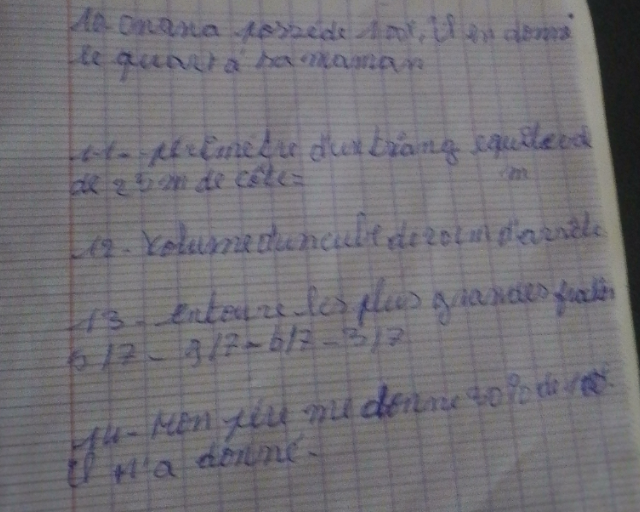 10. onana possède 100f, il en donne
le quart à sa maman
11- périmètre d'un triang equilerd
de 25 m de côté = m
12- Volume d'un cube de 20 m d'arrête
13- entoure les plus grandes
5/7 - 9/7 - 6/7 - 3/7
14- Mon père me donne 20% de
Il m'a donné.